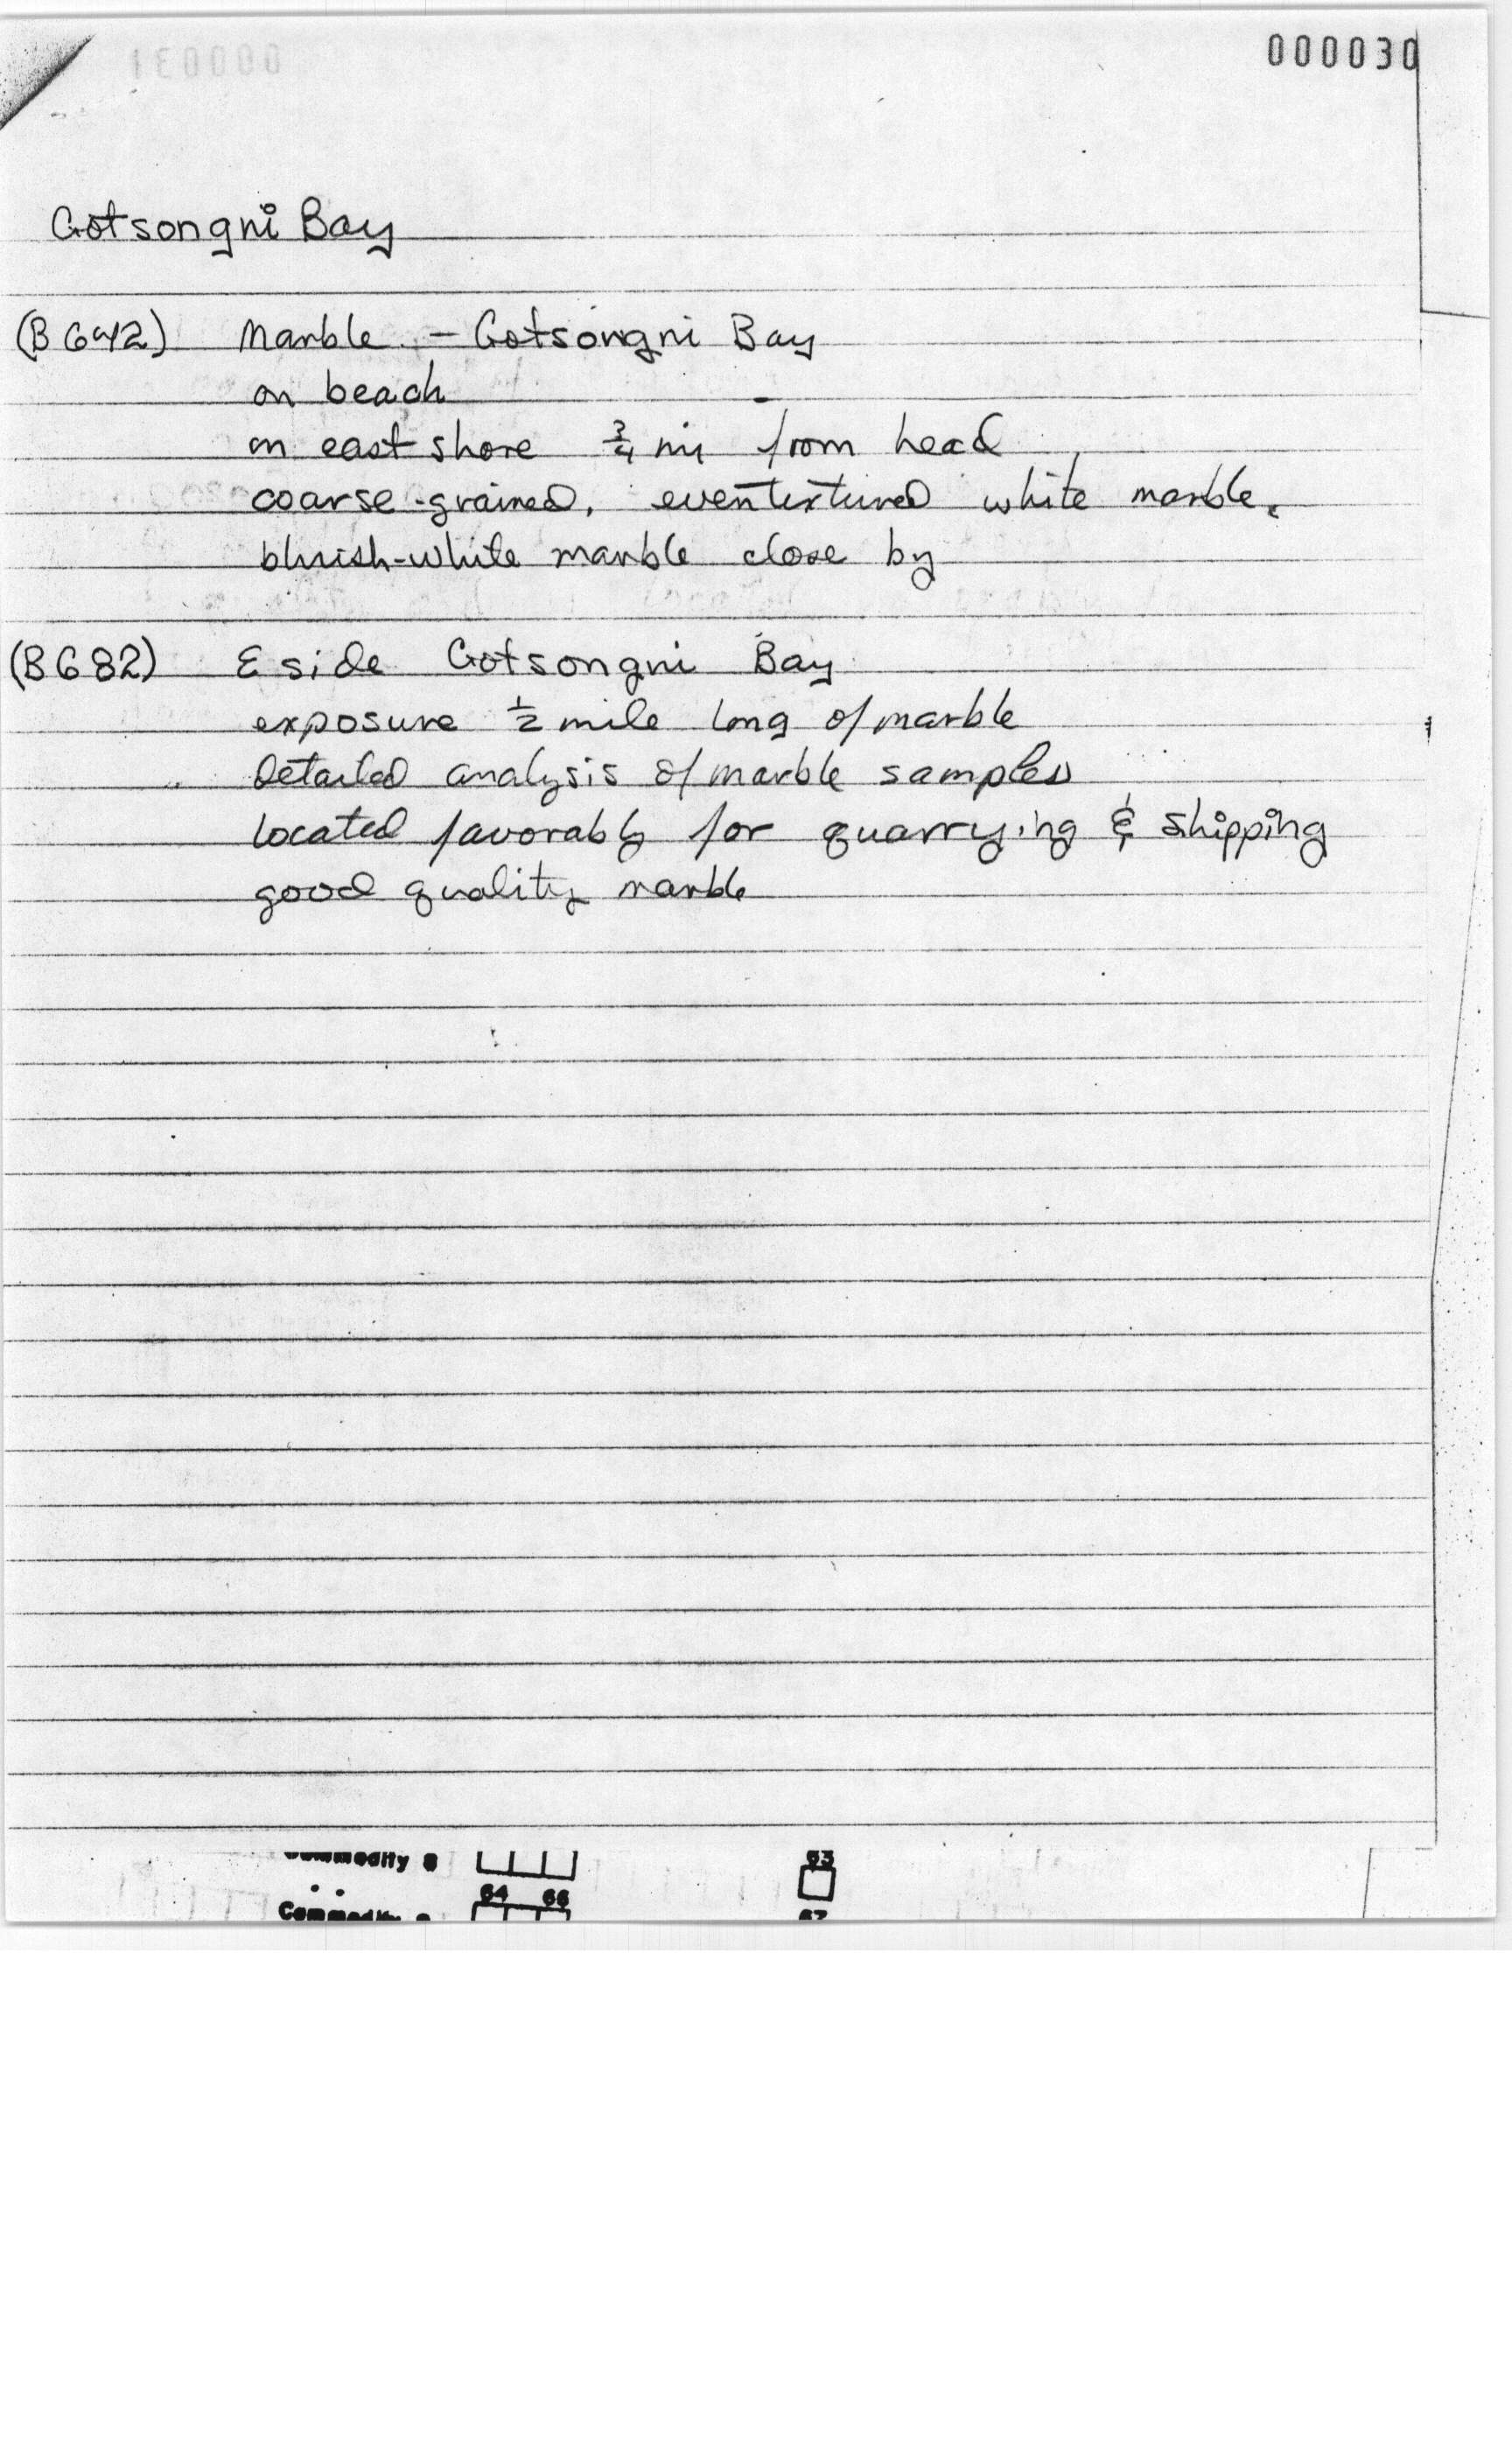 000030
Gotsongni Bay
(B 642) Marble - Gotsongni Bay
on beach
on east shore 3/4 mi from head
coarse-grained, even textured white marble,
bluish-white marble close by
(B 682) E side Gotsongni Bay
exposure 1/2 mile long of marble
detailed analysis of marble samples
located favorably for quarrying & shipping
good quality marble
63
64 66